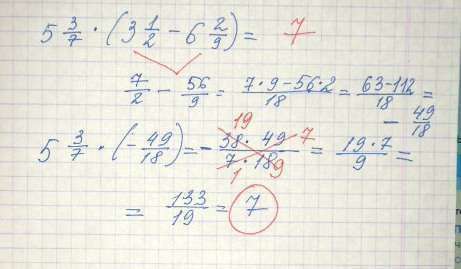 5 3/7 · (3 1/2 − 6 2/9) = 7
7/2 − 56/9 = (7·9 − 56·2)/18 = (63 − 112)/18 = − 49/18
5 3/7 · (− 49/18) = − (38 · 49)/(7 · 18) 19 7 1 9 = (19 · 7)/9 =
= 133/19 = 7